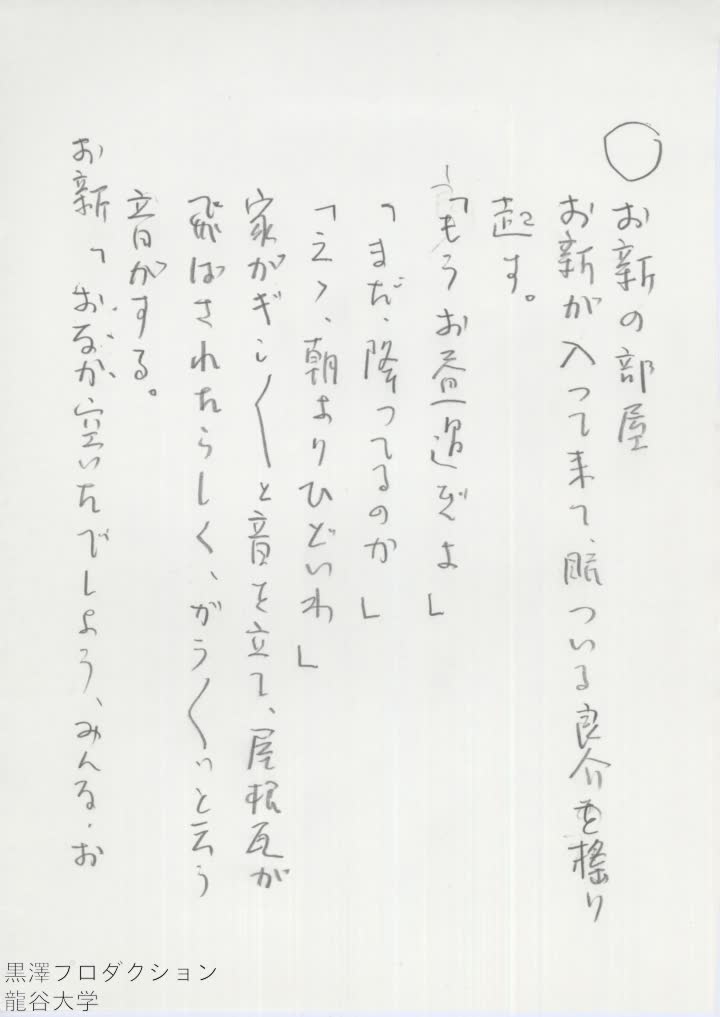 ○ お新の部屋
お新が入って来て、眠ついる良介を揺り
起す。
「もうお昼過ぎよ」
「まだ、降ってるのか」
「えゝ、朝よりひどいわ」
家がぎし〱と音を立て、屋根瓦が
飛ばされたらしく、がら〱っと云う
音がする。
お新「おなか空いたでしよう、みんな、お
黒澤プロダクション
龍谷大学